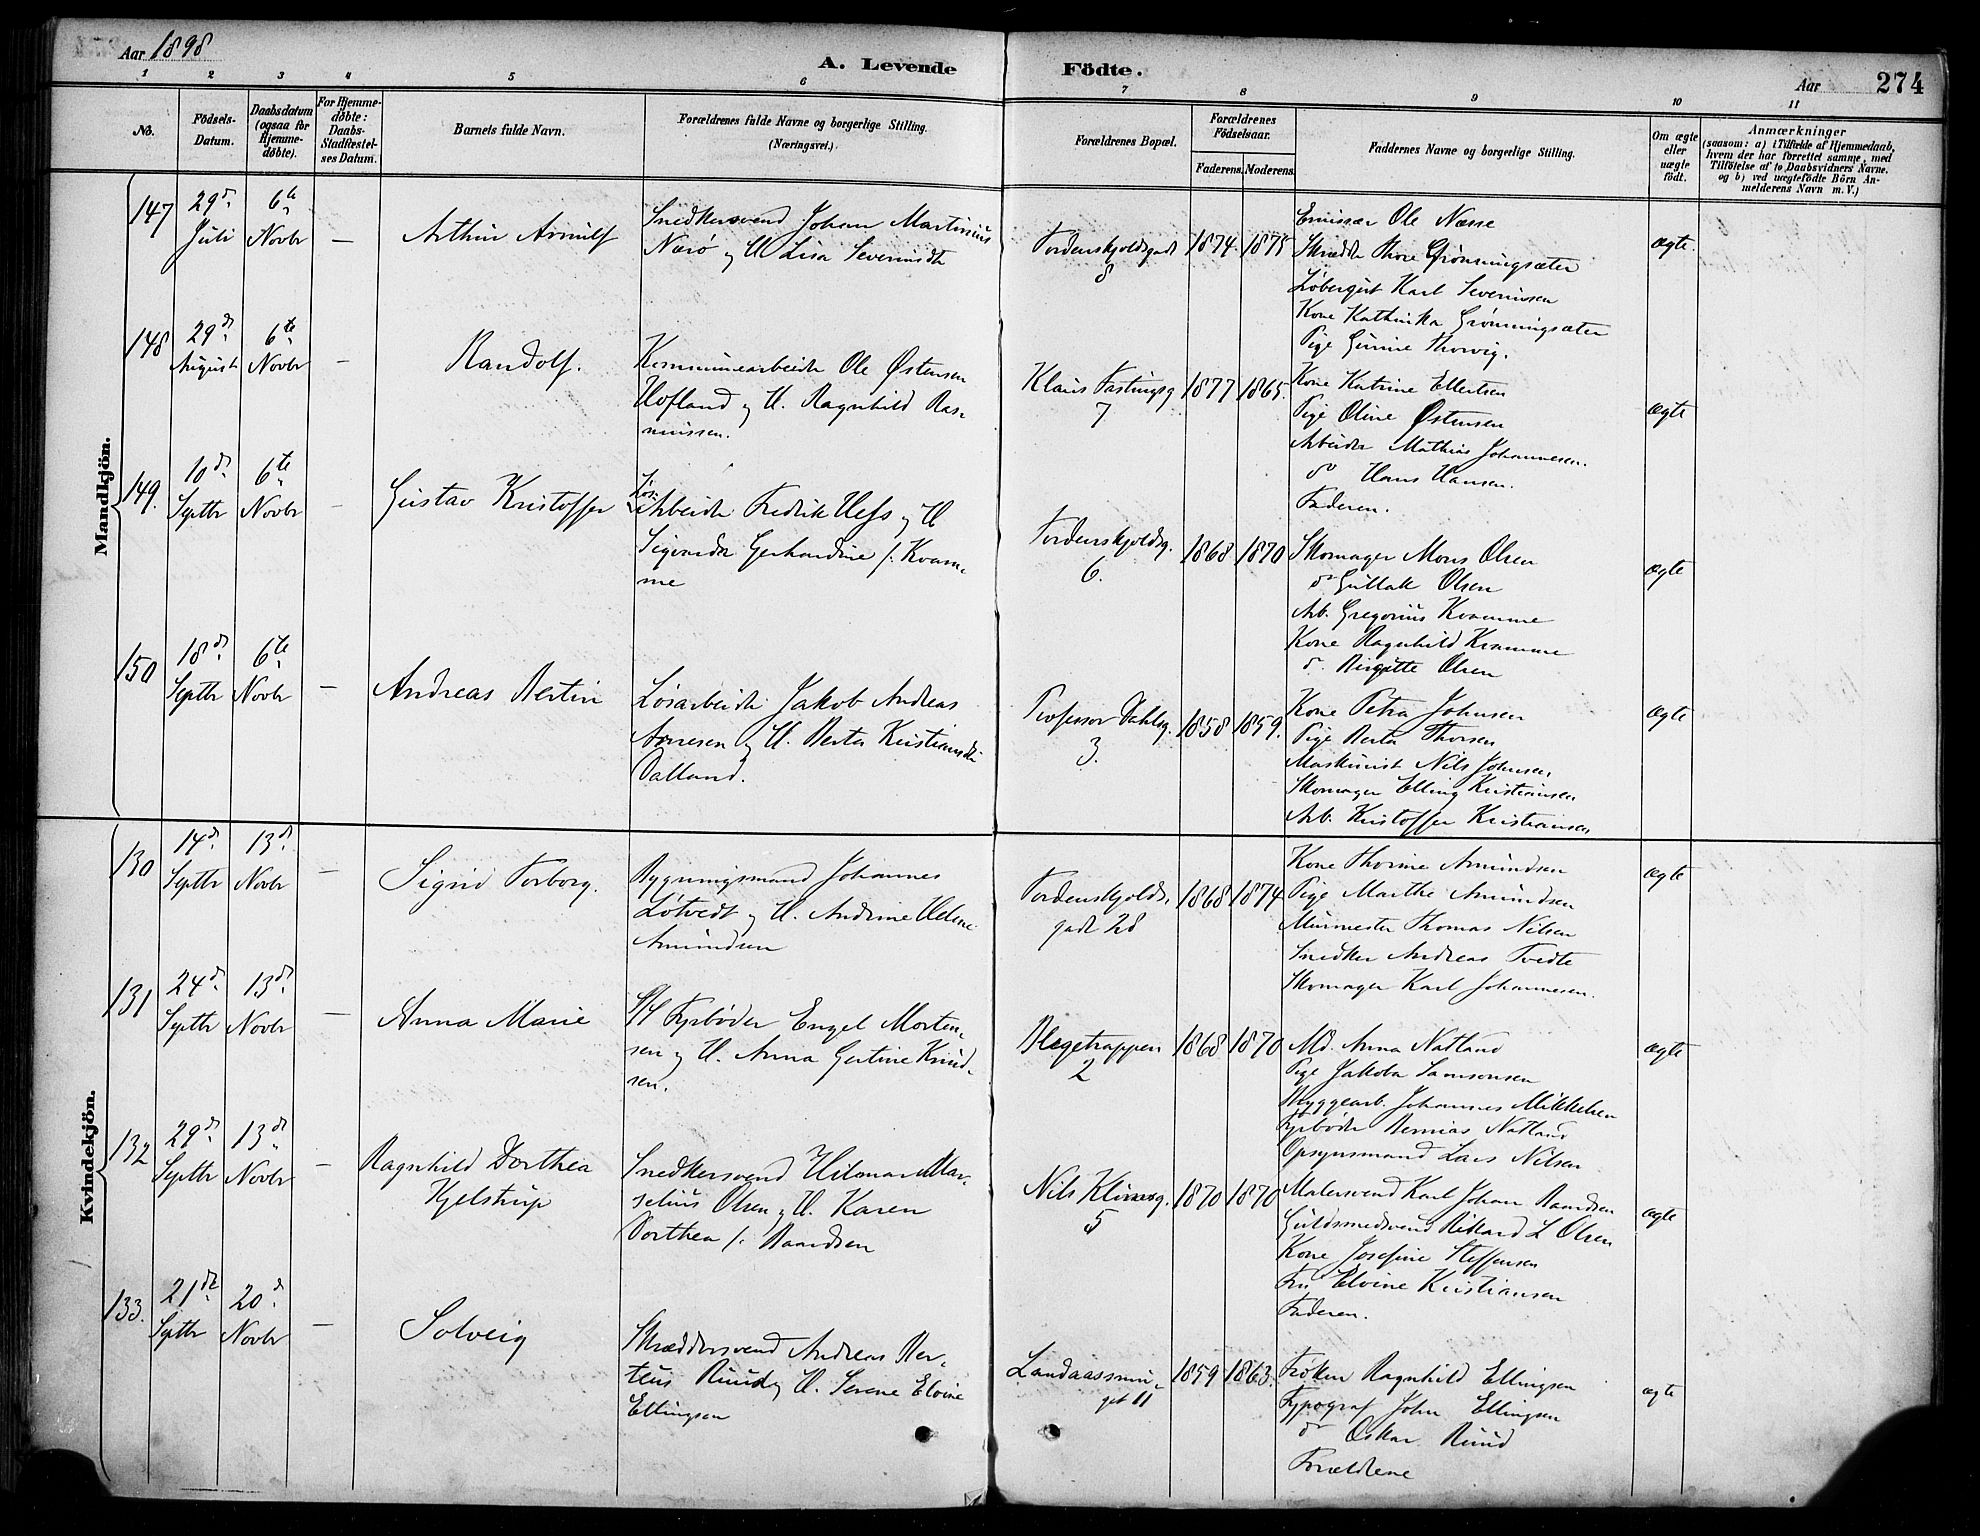 Aar 1898
A. Levende Födte.
Aar
274
1 2 3 4 5 6 7 8 9 10 11
No.
Födsels-Datum.
Daabsdatum (ogsaa for Hjemme-döbte).
For Hjemme-döbte: Daabs-Stadfæstel-ses Datum.
Barnets fulde Navn.
Forældrenes fulde Navne og borgerlige Stilling.
(Næringsvei.)
Forældrenes Bopæl.
Forældrenes Födselsaar.
Faderens. Moderens.
Faddernes Navne og borgerlige Stilling.
Om ægte eller uægte födt.
Anmærkninger
(saasom: a) i Tilfælde af Hjemmedaab,
hvem der har forrettet samme, med
Tilföielse af to Daabsvidners Navne.
og b) ved uægtefödte Börn An-
melderens Navn m. V.)
Mandkjön.
147 29d Juli 6te Novbr — Arthur Arnulf
Snedkersvend Johan Martinius
Nærø og H. Lisa Severinsdtr
Tordenskjoldsgade 8
1874. 1875
Emissær Ole Næsse
Skrædder Thore Grønningsæter
Løbergut Karl Severinsen
Kone Kathinka Grønningsæter
Pige Gunine Thorvig.
ægte.
148 29d August 6te Novbr — Randolf.
Kommunearbeider Ole Østensen
Hofland og H. Ragnhild Ras-
mussen.
Klaus Fastingsg 7
1877 1865.
Kone Katrine Ellertsen
Pige Oline Østensen
Arbeider Mathias Johannesen.
do Hans Hansen.
Faderen.
ægte
149. 10d Septbr 6te Novbr — Gustav Kristoffer
Løs-
Arbeider Fredrik Hess og H
Sigvarda Gerhardine f. Kvam-
me
Tordenskjoldsg. 6.
1868 1870
Skomager Mons Olsen
do Gullak Olsen
Arb. Gregorius Kvamme
Kone Ragnhild Kvamme
do Birgitte Olsen
ægte
150 18d Septbr 6te Novbr — Andreas Bertin
Løsarbeider Jakob Andreas
Arnesen og H. Berta Kristiansdtr
Dalland.
Professor Dahlsg. 3.
1858 1859.
Kone Petra Johnsen
Pige Berta Thorsen
Maskinist Nils Johnsen
Skomager Elling Kristiansen
Arb. Kristoffer Kristiansen
ægte
Kvindekjön.
130 14d Septbr 13d Novbr — Sigrid Torborg.
Bygningsmand Johannes
Løtvedt og H. Andrine Helene
Amundsen
Tordenskjolds-
gade 28
1868 1874
Kone Thorine Amundsen
Pige Marthe Amundsen
Murmester Thomas Nilsen
Snedker Andreas Tvedte
Skomager Karl Johannesen.
ægte
131 24d Septbr 13d Novbr — Anna Marie
S/S Fyrbøder Engel Morten-
sen og H. Anna Gertine Knud-
sen.
Blegetrappen 2
1868 1870
Md. Anna Natland
Pige Jakoba Samsonsen
Bryggearb. Johannes Mikkelsen
Fyrbøder Bernias Natland
Opsynsmand Lars Nilsen
ægte
132 29d Septbr 13d Novbr — Ragnhild Dorthea
Kjelstrup
Snedkersvend Hilmar Mar-
selius Olsen og H. Karen
Dorthea f. Baardsen
Nils Klimsg. 5
1870 1870
Malersvend Karl Johan Baardsen
Guldsmedsvend Rikard L Olsen
Kone Josefine Steffensen
Fru Elvine Kristiansen
Faderen.
ægte
133. 21de Septbr 20d Novbr — Solveig
Skræddersvend Andreas Ber-
teus Ruud og H. Serene Elvine
Ellingsen
Landaassmu-
get 11
1859 1863.
Frøken Ragnhild Ellingsen
Typograf John Ellingsen
do Oskar Ruud
Forældrene
ægte